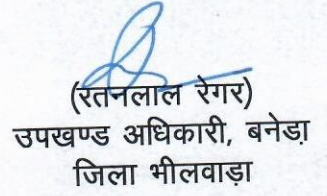 (रतनलाल रेगर)
उपखण्ड अधिकारी, बनेडा़
जिला भीलवाड़ा